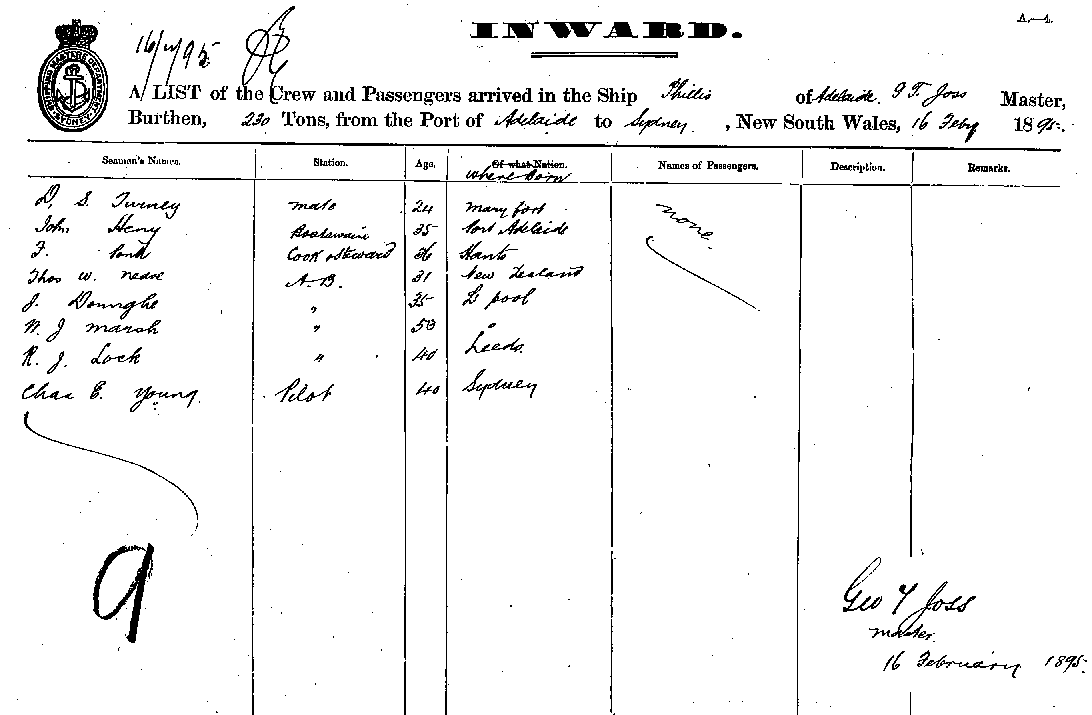 A.—4.
INWARD.
16/2/95
SHIPPING MASTERS DEPARTMENT SYDNEY
A LIST of the Crew and Passengers arrived in the Ship Phillis of Adelaide. G T. Joss Master,
Burthen, 230 Tons, from the Port of Adelaide to Sydney , New South Wales, 16 Feby 1895.
Seamen's Names. Station. Age. Of what Nation. Names of Passengers. Description. Remarks.
where Born
D. S. Turney mate 24 Mary port none.
John Heny Boatswain 35 Port Adelaide
F. Cook & Steward 36 Hants
Thos W. A.B. 31 New Zealand
J. Donnghe " 35 L pool
W. J Marsh " 50 "
R. J. Lock " 40 Leeds.
Chas E. Young. Pilot 40 Sydney
9
Geo T Joss
master.
16 February 1895.